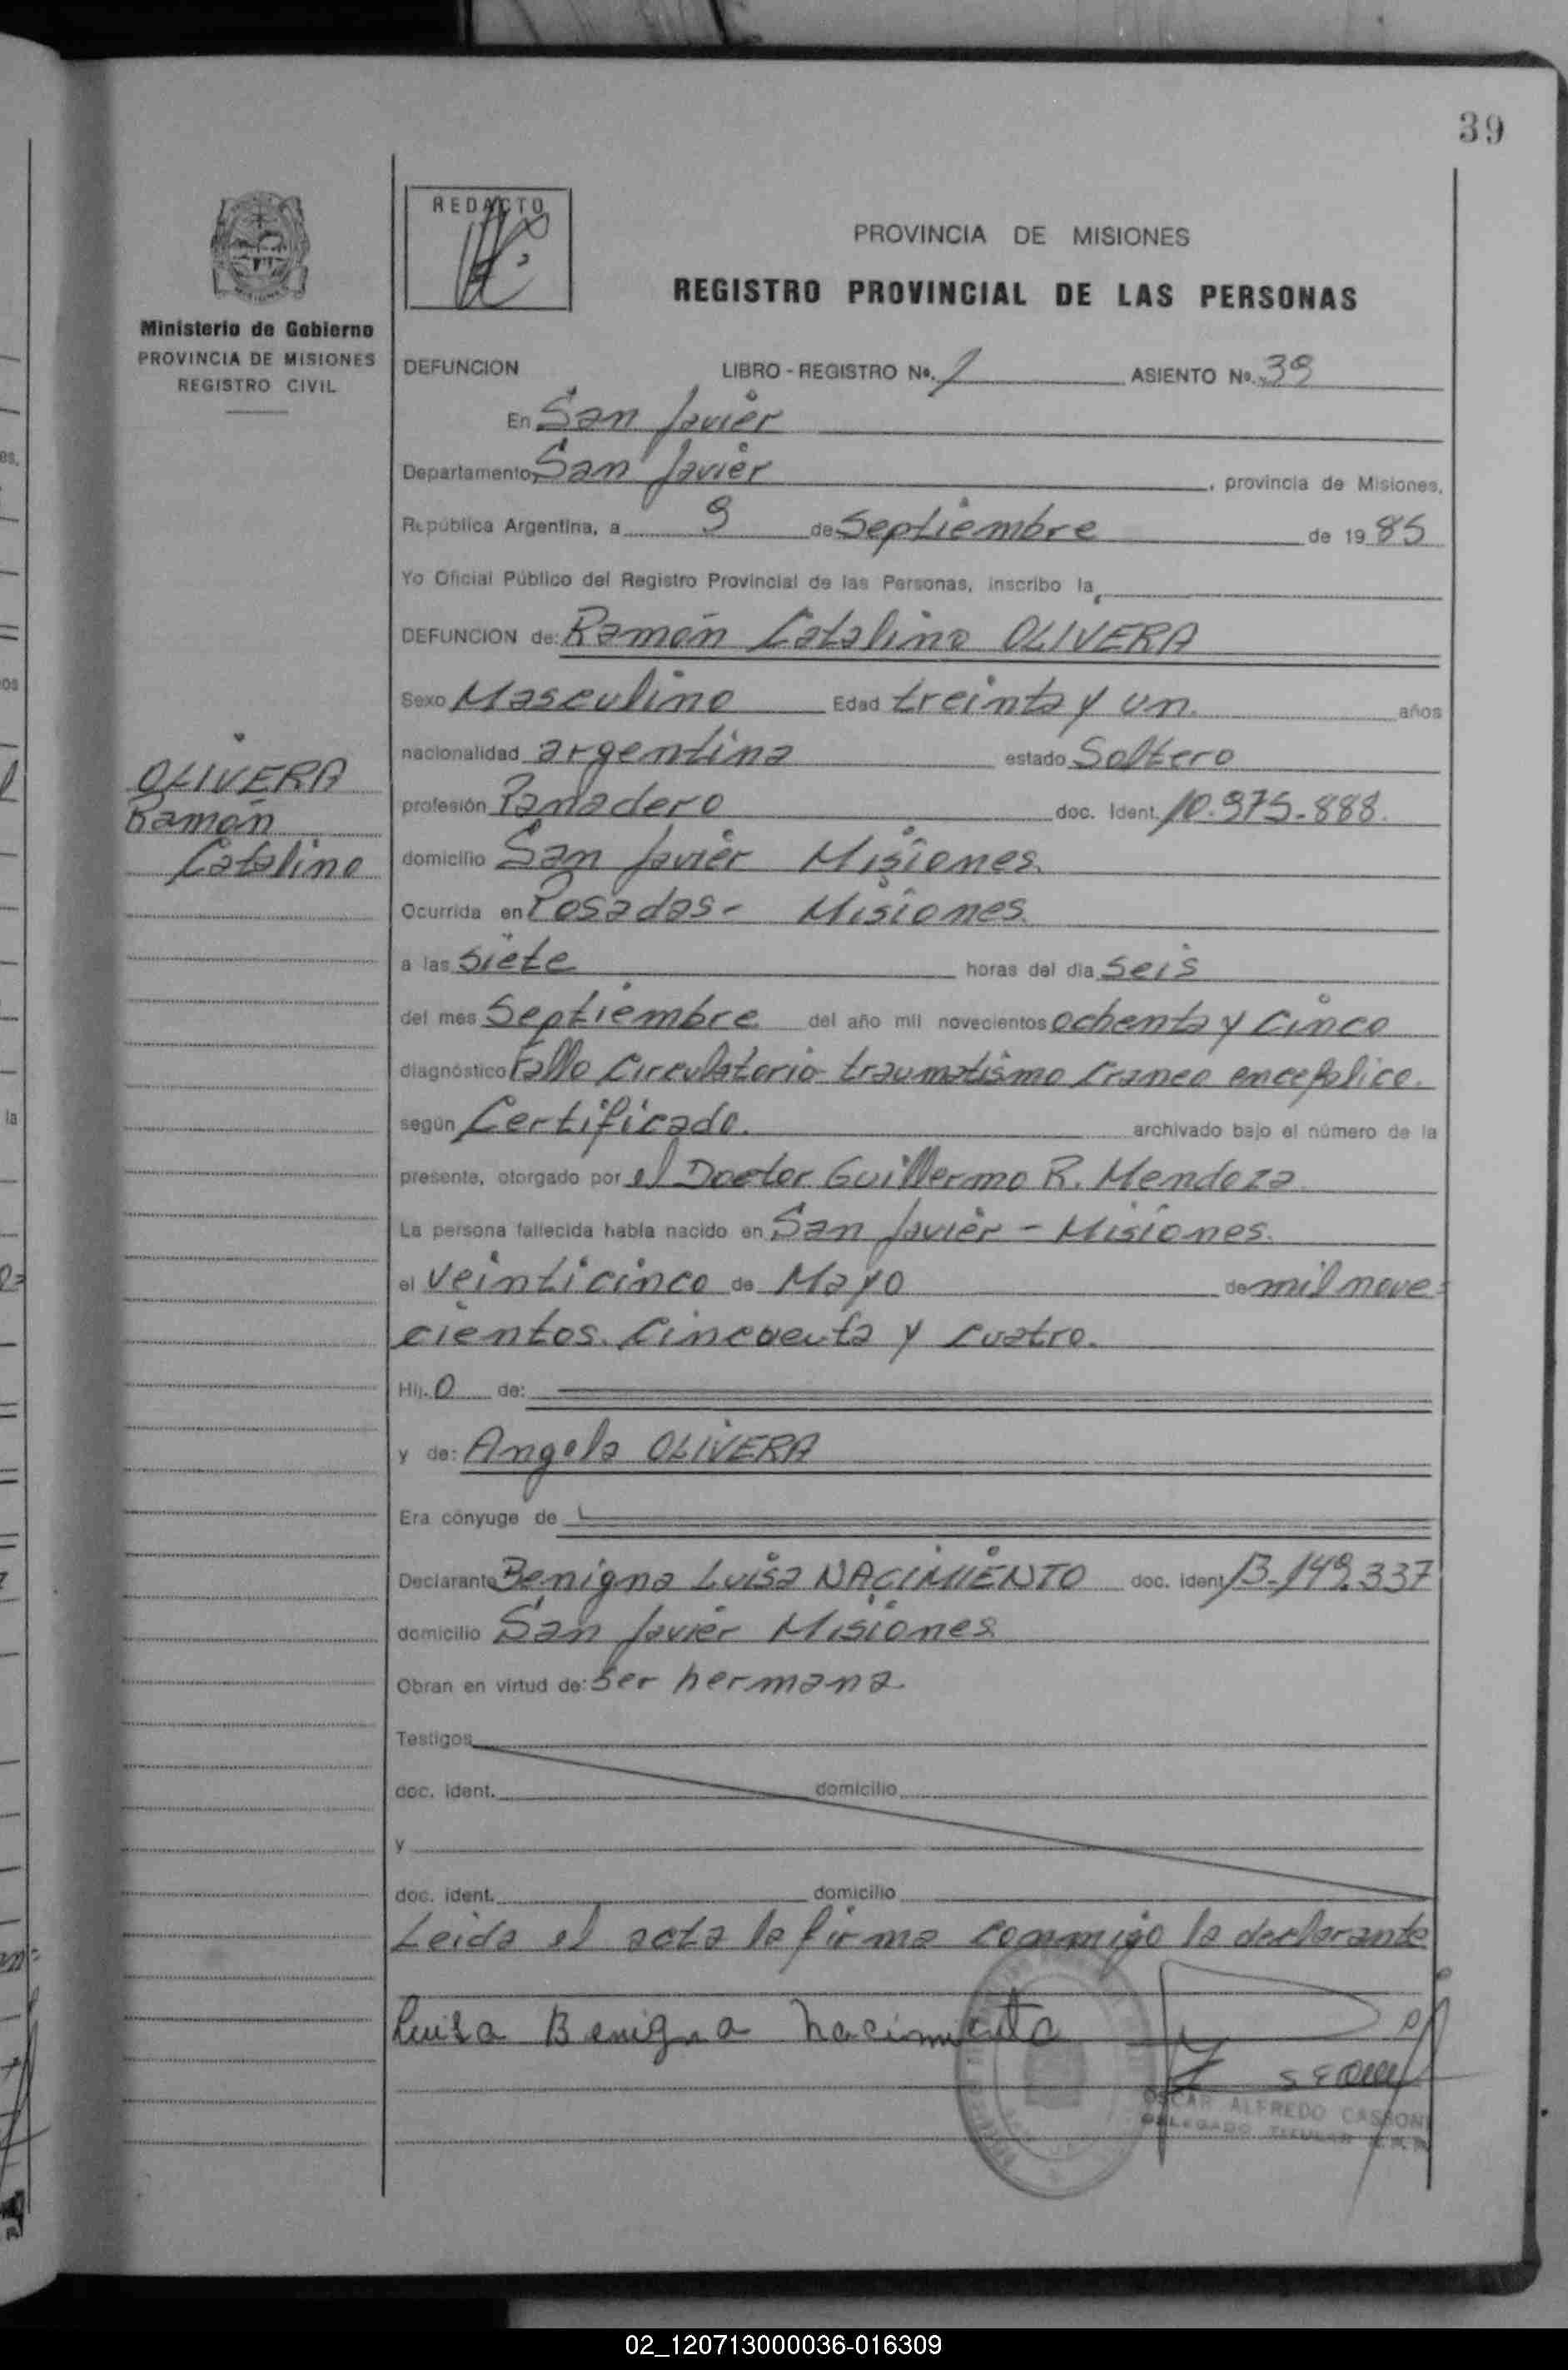 39
REDACTO
PROVINCIA DE MISIONES
REGISTRO PROVINCIAL DE LAS PERSONAS
Ministerio de Gobierno
PROVINCIA DE MISIONES
REGISTRO CIVIL
DEFUNCION LIBRO - REGISTRO Nº. 1 ASIENTO Nº. 39
En San Javier
Departamento San Javier, provincia de Misiones,
República Argentina, a 9 de Septiembre de 1985
Yo Oficial Público del Registro Provincial de las Personas, inscribo la
DEFUNCION de: Ramón Catalino OLIVERA
Sexo Masculino Edad treinta y un años
nacionalidad argentina estado Soltero
OLIVERA
Ramón
Catalino
profesión Panadero doc. Ident. 10.975.888.
domicilio San Javier Misiones
Ocurrida en Posadas - Misiones.
a las siete horas del día seis
del mes Septiembre del año mil novecientos ochenta y cinco
diagnóstico Fallo Circulatorio traumatismo craneo encefalico.
según Certificado. archivado bajo el número de la
presente, otorgado por el Doctor Guillermo R. Mendoza
La persona fallecida había nacido en San Javier - Misiones.
el veinticinco de Mayo de mil nove=
cientos. cincuenta y cuatro.
Hij. o de:
y de: Angela OLIVERA
Era cónyuge de
Declarante Benigna Luisa NACIMIENTO doc. ident. 13.149.337
domicilio San Javier Misiones
Obran en virtud de: ser hermana
Testigos
doc. ident. domicilio
y
doc. ident. domicilio
Leida el acta la firma conmigo la declarante
Luisa Benigna Nacimiento
OSCAR ALFREDO CASSONI
DELEGADO TITULAR
02_120713000036-016309